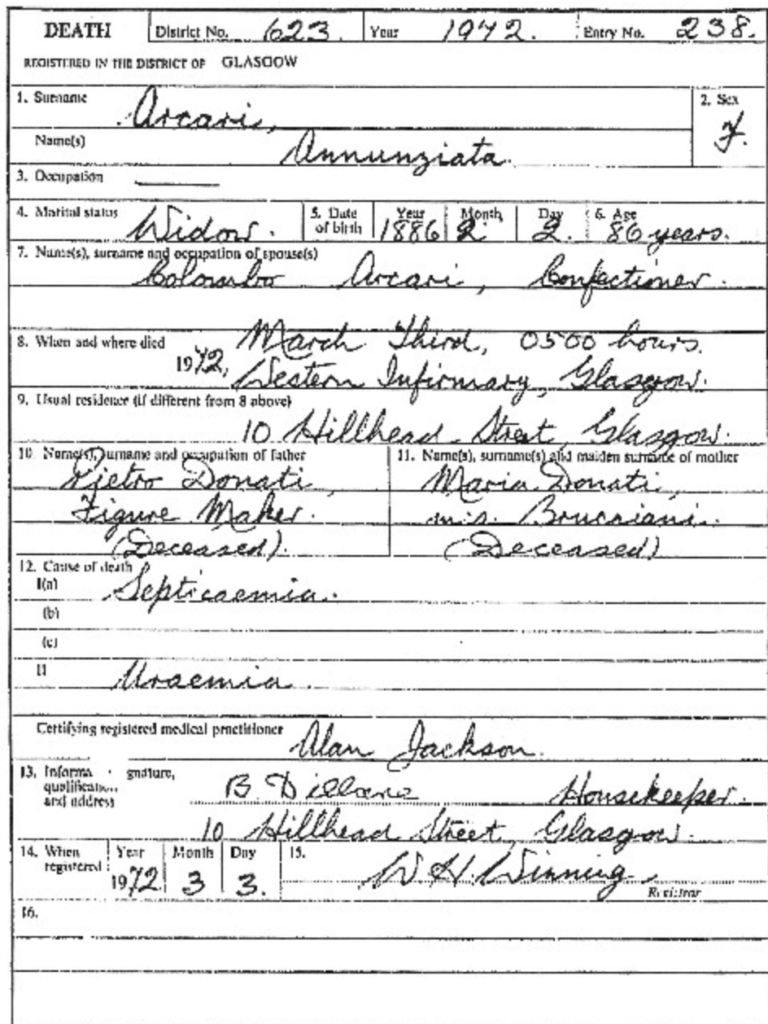 DEATH District No. 623. Year 1972. Entry No. 238.
REGISTERED IN THE DISTRICT OF GLASGOW
1. Surname Arcari, 2. Sex F.
Name(s) Annunziata.
3. Occupation
4. Marital status Widow. 5. Date of birth Year 1886 Month 2 Day 2. 6. Age 86 years.
7. Name(s), surname and occupation of spouse(s)
Colombo Arcari, Confectioner.
8. When and where died March Third, 0500 hours.
1972, Western Infirmary, Glasgow.
9. Usual residence (if different from 8 above)
10 Hillhead Street, Glasgow.
10. Name(s), surname and occupation of father
Pietro Donati,
Figure Maker.
(Deceased).
11. Name(s), surname(s) and maiden surname of mother
Maria Donati,
m.s. Brucciani.
(Deceased)
12. Cause of death
I(a) Septicaemia.
(b)
(c)
II Uraemia.
Certifying registered medical practitioner Alan Jackson.
13. Informa gnature,
qualification and address
B. Housekeeper.
10 Hillhead Street, Glasgow.
14. When registered Year 1972 Month 3 Day 3. 15. W H. Winning.
Registrar
16.